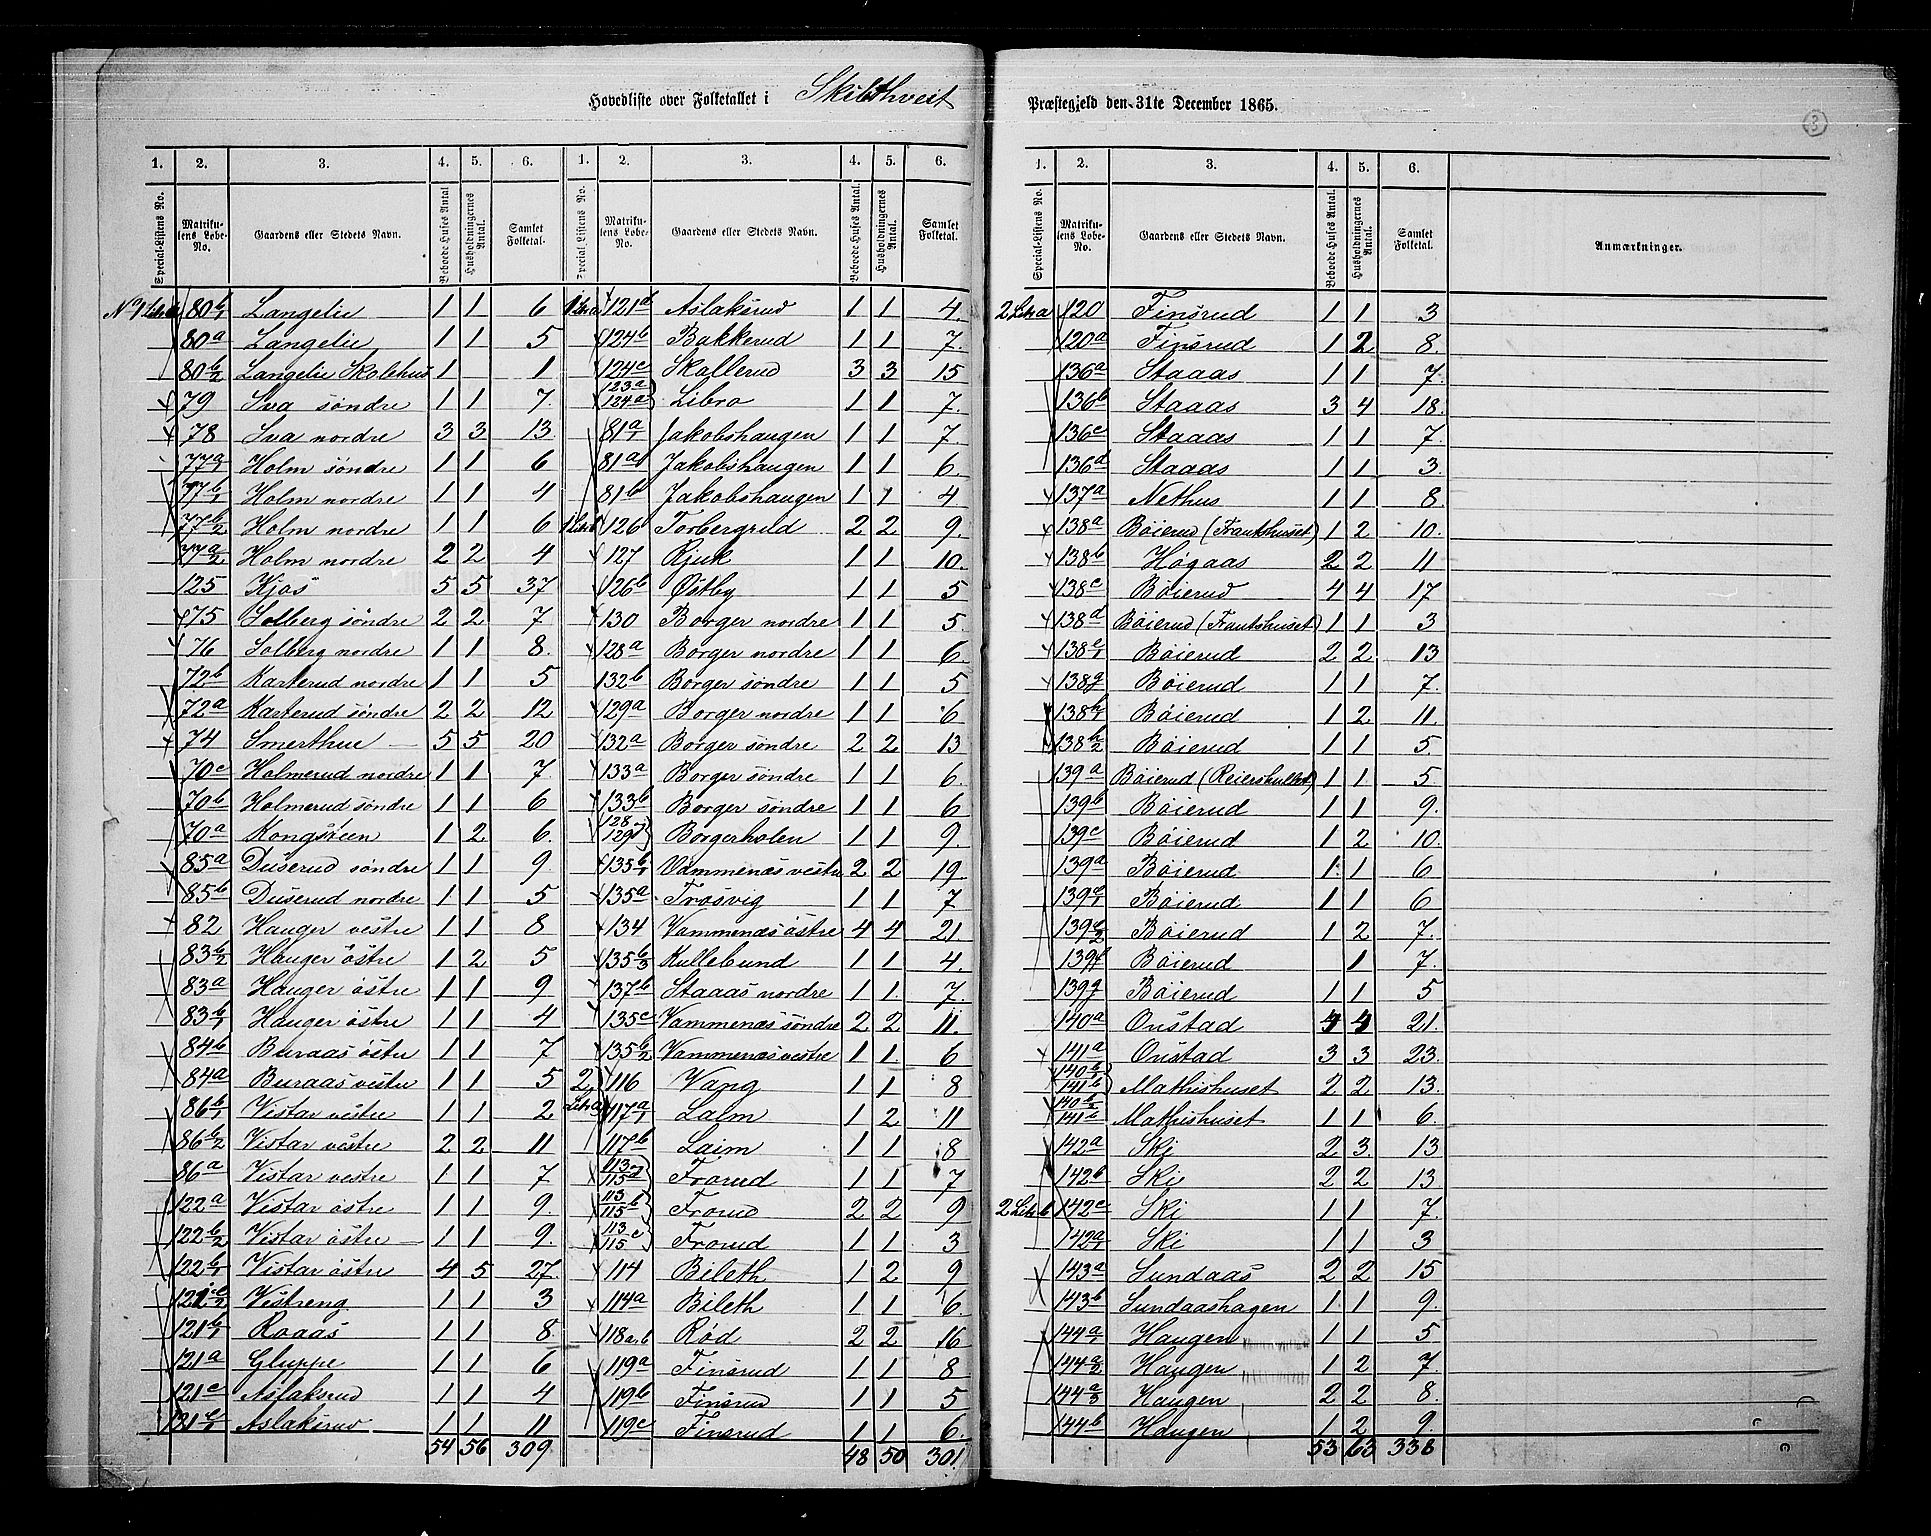 Hovedliste over Folketallet i Skibthveit Præstegjeld den 31te December 1865.
3
1. 2. 3. 4. 5. 6. 1. 2. 3. 4. 5. 6.
Special-Listens No. Matrikulens Løbe-No. Gaardens eller Stedets Navn. Beboede Huses Antal Husholdningernes Antal. Samlet Folketal. Special-Listens No. Matrikulens Løbe-No. Gaardens eller Stedets Navn. Beboede Huses Antal. Husholdningernes Antal. Samlet Folketal.
No 1 Litr b 80b1 Langelie 1 1 6
80a Langelie 1 1 5
80b2 Langelie Skolehus 1 1
79 Sva söndre 1 1 7.
78 Sva nordre 3 3 13.
77a1 Holm söndre 1 1 6
77b1 Holm nordre 1 1 4
77b2 Holm nordre 1 1 6
77a2 Holm nordre 2 2 4
125 Kjos 5 5 37
75 Solberg söndre 2 2 7
76 Solberg nordre 1 1 8.
72b Karterud nordre 1 1 5
72a Karterud söndre 2 2 12
74 Smerthue 5 5 20
70c Holmerud nordre 1 1 7.
70b Holmerud söndre 1 1 6
70a Kongsveen 1 2 6.
85a Duserud söndre 1 1 9.
85b Duserud nordre 1 1 5
82 Hauger vestre 1 1 8
83b2 Hauger östre 1 2 5
83a Hauger östre 1 1 9
83b1 Hauger östre 1 1 4
84b Buraas östre 1 1 7
84a Buraas vestre 1 1 5
86b1 Vistar vestre 1 1 2
86b2 Vistar vestre 2 2 11
86a Vistar vestre 1 1 7
122a Vistar östre 1 1 9.
122b2 Vistar östre 1 1 9.
122b1 Vistar östre 4 5 27.
121c2 Vistreng 1 1 3
121b1 Raaas 1 1 8.
121a Gluppe 1 1 6
121c Aslaksrud 1 1 4
121c1 Aslaksrud 1 1 11
54 56 309.
1 Litr a 121d Aslaksrud 1 1 4.
124b Bakkerud 1 1 7.
124c Skallerud 3 3 15
123a 124a Libro 1 1 7.
81a1 Jakobshaugen 1 1 7.
81a Jakobshaugen 1 1 6.
81b Jakobshaugen 1 1 4
1 Litr b 126 Torbergrud 2 2 9.
127 Rjuk 1 1 10.
126b Østby 1 1 5
130 Borger nordre 1 1 5.
128a Borger nordre 1 1 6.
132b Borger söndre 1 1 5
129a Borger nordre 1 1 6
132a Borger söndre 2 2 13
133a Borger söndre 1 1 6.
133b Borger söndre 1 1 6
128 129 Borgerholen 1 1 9.
135b1 Vammenæs vestre 2 2 19.
135a Trösvig 1 1 7
134 Vammenæs östre 4 4 21.
135b3 Kullebund 1 1 4.
137b Staaas nordre 1 1. 7.
135c Vammenæs söndre 2 2 11.
135b2 Vammenæs vestre 1 1. 6
2 Litr a 116 Vang 1 1 8
117a1 Laim 1 2 11
117b Laim 1 1 8
113 115a Frorud 1 1 7
113 115b Frorud 2 2 9
113 115c Frorud 1 1 3
114 Bileth 1 2 9
114a Bileth 1 1 6.
118a.b Röd 2 2 16
119a Finsrud 1 1 8
119b Finsrud 1 1 5
119c Finsrud 1 1 6.
48 50 301.
1. 2. 3. 4. 5. 6.
Special-Listens No. Matrikulens Løbe-No. Gaardens eller Stedets Navn. Beboede Huses Antal. Husholdningernes Antal. Samlet Folketal. Anmærkninger.
2 Litr a 120 Finsrud 1 1 3
120a Finsrud 1 2 8.
136a Staaas 1 1 7.
136b Staaas 3 4 18.
136c Staaas 1 1 7.
136d Staaas 1 1 3.
137a Nethus 1 1 8.
138a Böierud (Frantshuset) 1 2 10.
138b Högaas 2 2 11
138c Böierud 4 4 17
138d Böierud (Frantshuset) 1 1 3
138e1 Böierud 2 2 13
138g Böierud 1 1 7.
138h1 Böierud 1 2 11.
138h2 Böierud 1 1 5.
139a Böierud (Reiershullet) 1 1 5
139b Böierud 1 1 9.
139c Böierud 1 2 10.
139a Böierud 1 1 6
139e1 Böierud 1 1 6
139e2 Böierud 1 2 7.
139f Böierud 1 7.
139g Böierud 1 1 5
140a Onstad 4 4 21.
141a Onstad 3 3 23.
140b1 141b Mathishuset 2 2 13.
140b2 141b Mathishuset 1 1 6.
142a Ski 2 3. 13
142b Ski 2 2 13
2 Litr b 142c Ski 1 1 7.
142a1 Ski 1 1 3
143a Sundaas 2 2 15
143b Sundaashagen 1. 1 9.
144a1 Haugen 1 1 5
144a2 Haugen 1 2 7.
144a3 Haugen 2 2 8.
144b Haugen 1 2 9.
53 63 338